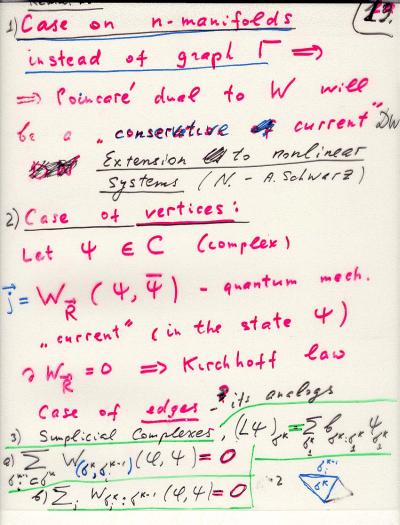 19.
1) Case on n-manifolds
instead of graph Γ ⟹
⟹ Poincaré dual to W will
be a „conservative current" DW
Extension to nonlinear
systems (N. - A. Schwarz)
2) Case of vertices:
Let Ψ ∈ C (complex)
j⃗ = W_R⃗ (Ψ, Ψ̄) - quantum mech.
„current" (in the state Ψ)
∂ W_R⃗ = 0 ⟹ Kirchhoff law
Case of edges - its analogs
3) Simplicial Complexes, (Lψ)_σᵏ = Σ b_σᵏ:σ₁ᵏ ψ_σ₁ᵏ
a) Σ W_(σᵏ,σᵏ⁻¹) (φ, ψ) = 0
b) Σ W_σᵏ:σᵏ⁻¹ (φ, ψ) = 0